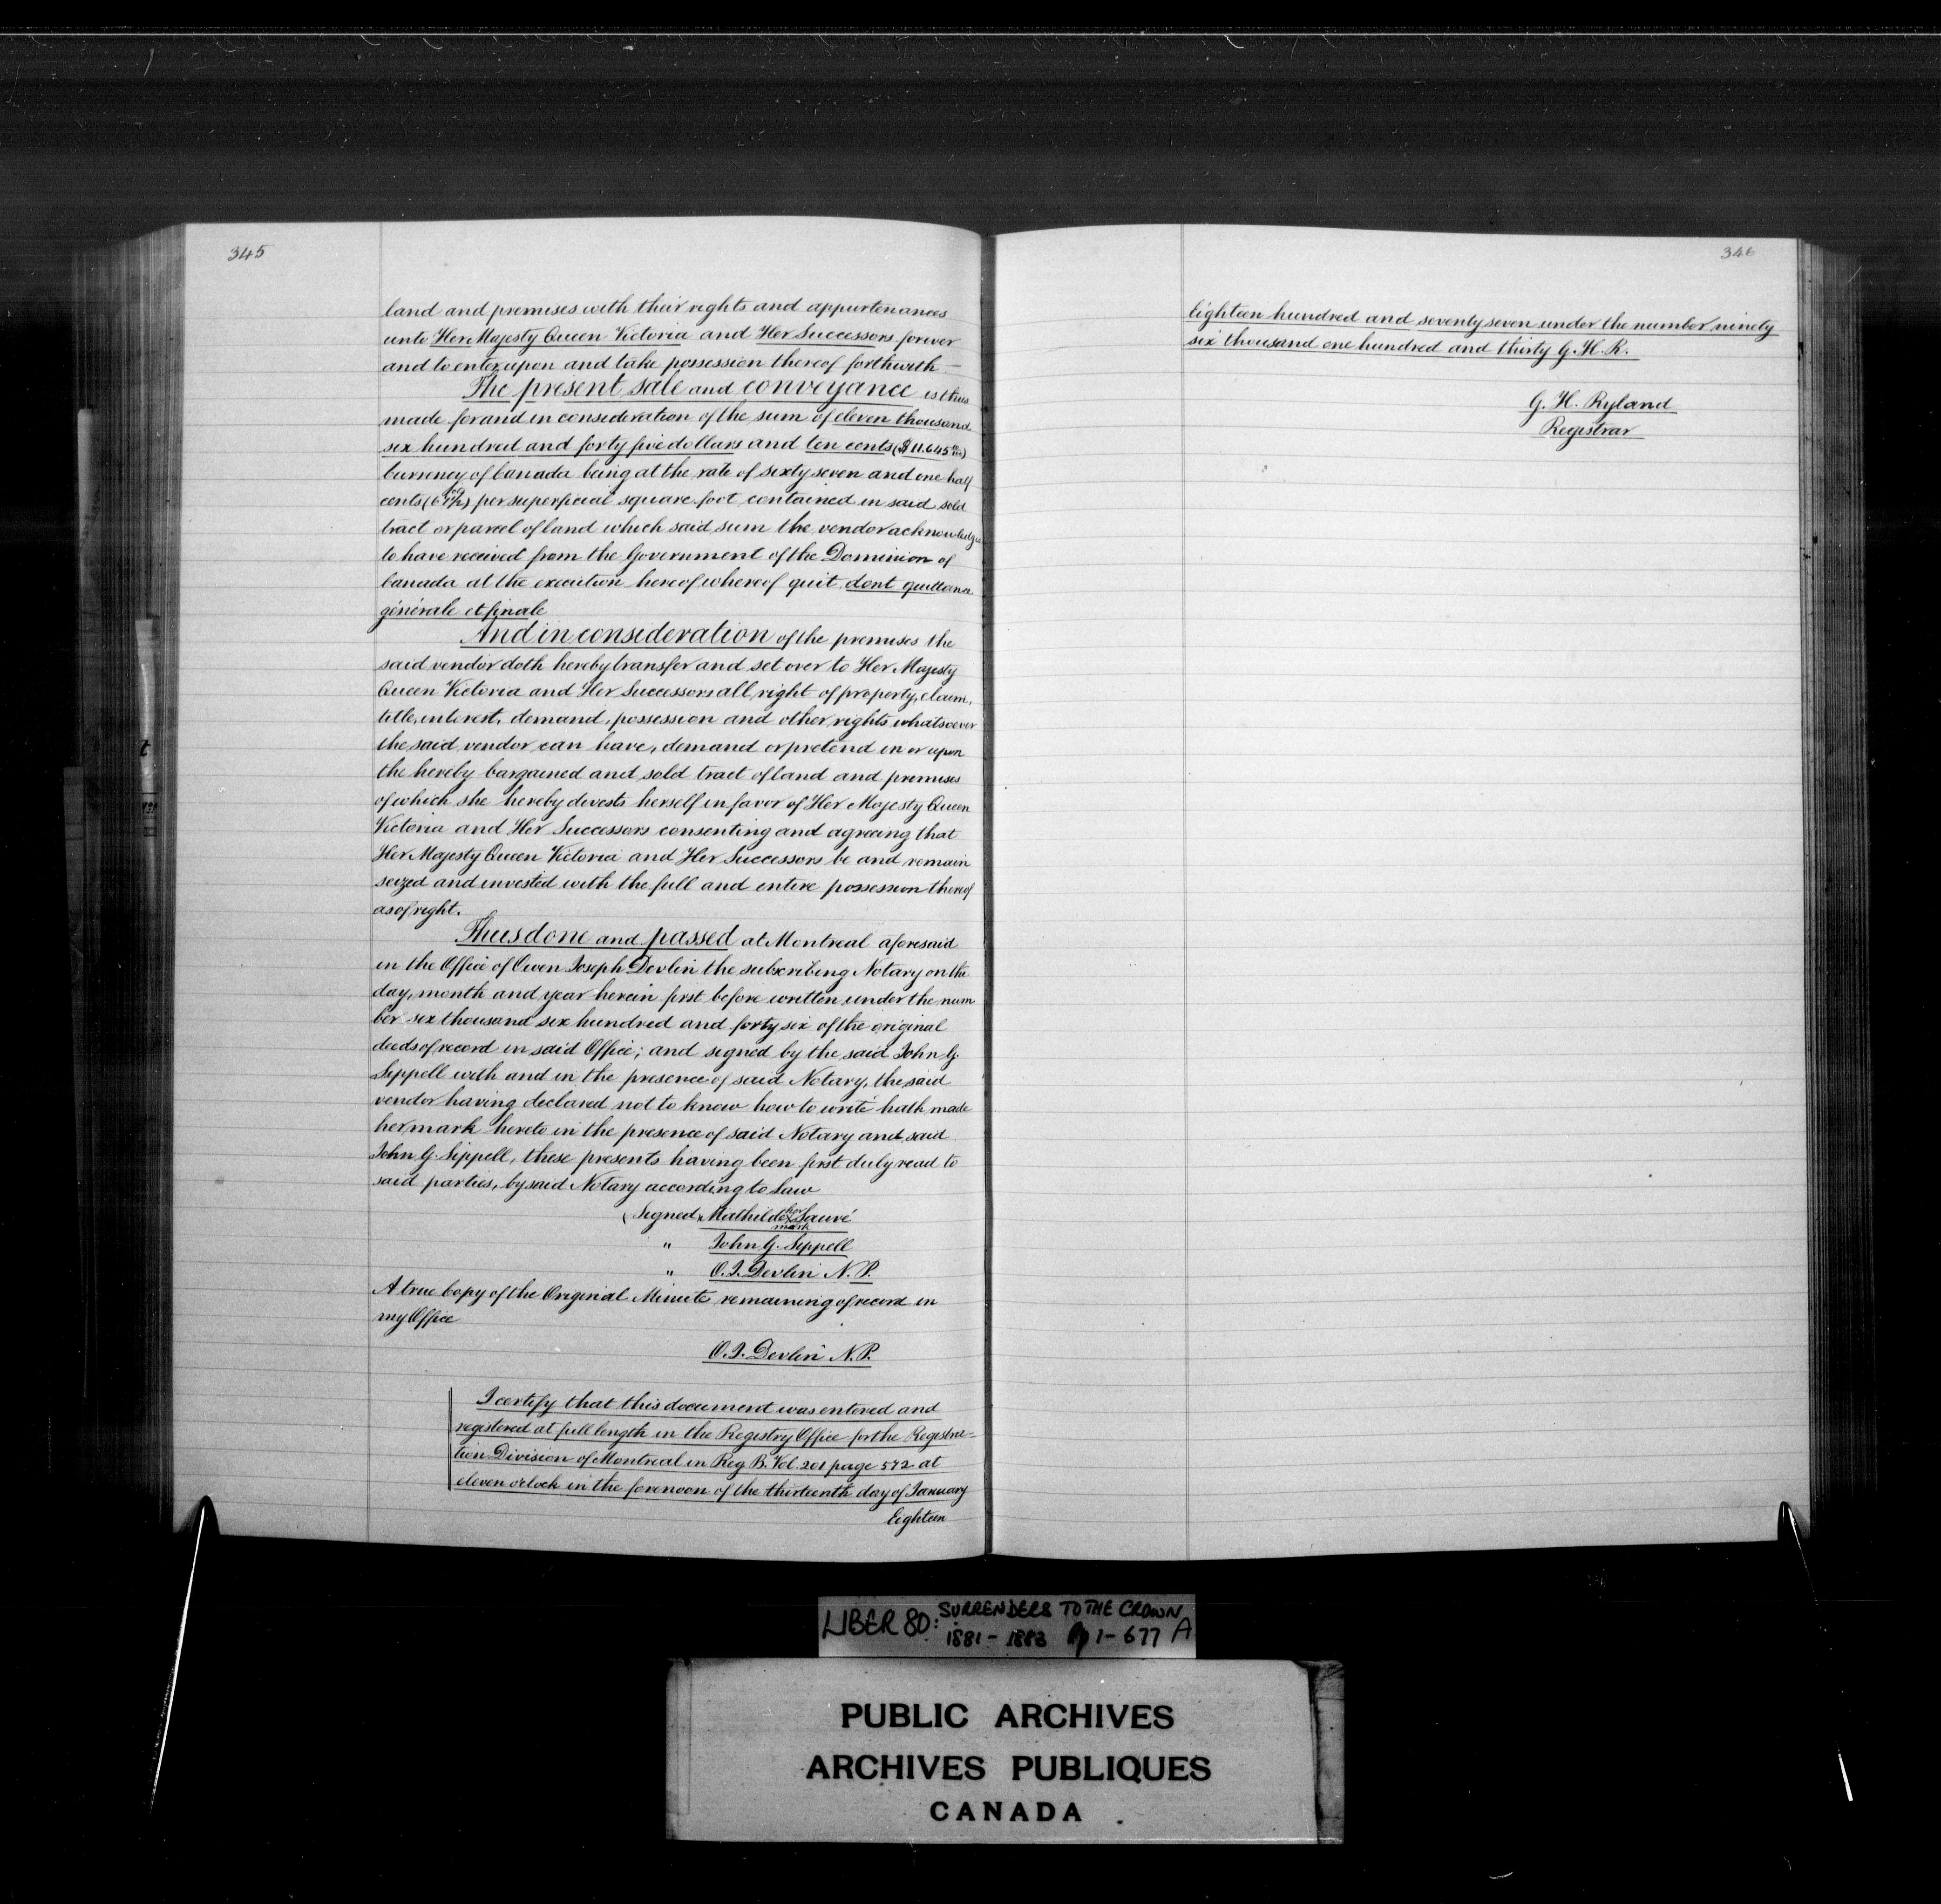 345
land and premises with their rights and appurtenances
unto Her Majesty Queen Victoria and Her Successors forever
and to enter upon and take possession thereof forthwith —
The present sale and conveyance is thus
made for and in consideration of the sum of eleven thousand
six hundred and forty five dollars and ten cents ($11.645 10/100)
Currency of Canada being at the rate of sixty seven and one half
cents (67½) per superficial square foot contained in said sold
tract or parcel of land which said sum the vendor acknowledges
to have received from the Government of the Dominion of
Canada at the execution hereof whereof quit dont quittance
générale et finale
And in consideration of the premises the
said vendor doth hereby transfer and set over to Her Majesty
Queen Victoria and Her Successors all right of property, claim,
title, interest, demand, possession and other rights whatsoever
the said vendor can have, demand or pretend in or upon
the hereby bargained and sold tract of land and premises
of which she hereby divests herself in favor of Her Majesty Queen
Victoria and Her Successors consenting and agreeing that
Her Majesty Queen Victoria and Her Successors be and remain
seized and invested with the full and entire possession thereof
as of right.
Thus done and passed at Montreal aforesaid
in the Office of Owen Joseph Devlin the subscribing Notary on the
day, month and year herein first before written under the num
ber six thousand six hundred and forty six of the original
deeds of record in said Office; and signed by the said John G.
Sippell with and in the presence of said Notary, the said
vendor having declared not to know how to write hath made
her mark hereto in the presence of said Notary and said
John G. Sippell, these presents having been first duly read to
said parties, by said Notary according to Law
(Signed, Mathilde her x mark Sauvé
" John G. Sippell
" O.J. Devlin N.P.
A true Copy of the Original Minute remaining of record in
my Office
O.J. Devlin N.P.
I certify that this document was entered and
registered at full length in the Registry Office for the Registra-
tion Division of Montreal in Reg B. Vol. 201 page 572 at
eleven o'clock in the forenoon of the thirteenth day of January
Eighteen
346
Eighteen hundred and seventy seven under the number ninety
six thousand one hundred and thirty G.H.R.
G. H. Ryland
Registrar
LIBER 80: SURRENDERS TO THE CROWN
1881 - 1883 pp 1 - 677 A
PUBLIC ARCHIVES
ARCHIVES PUBLIQUES
CANADA